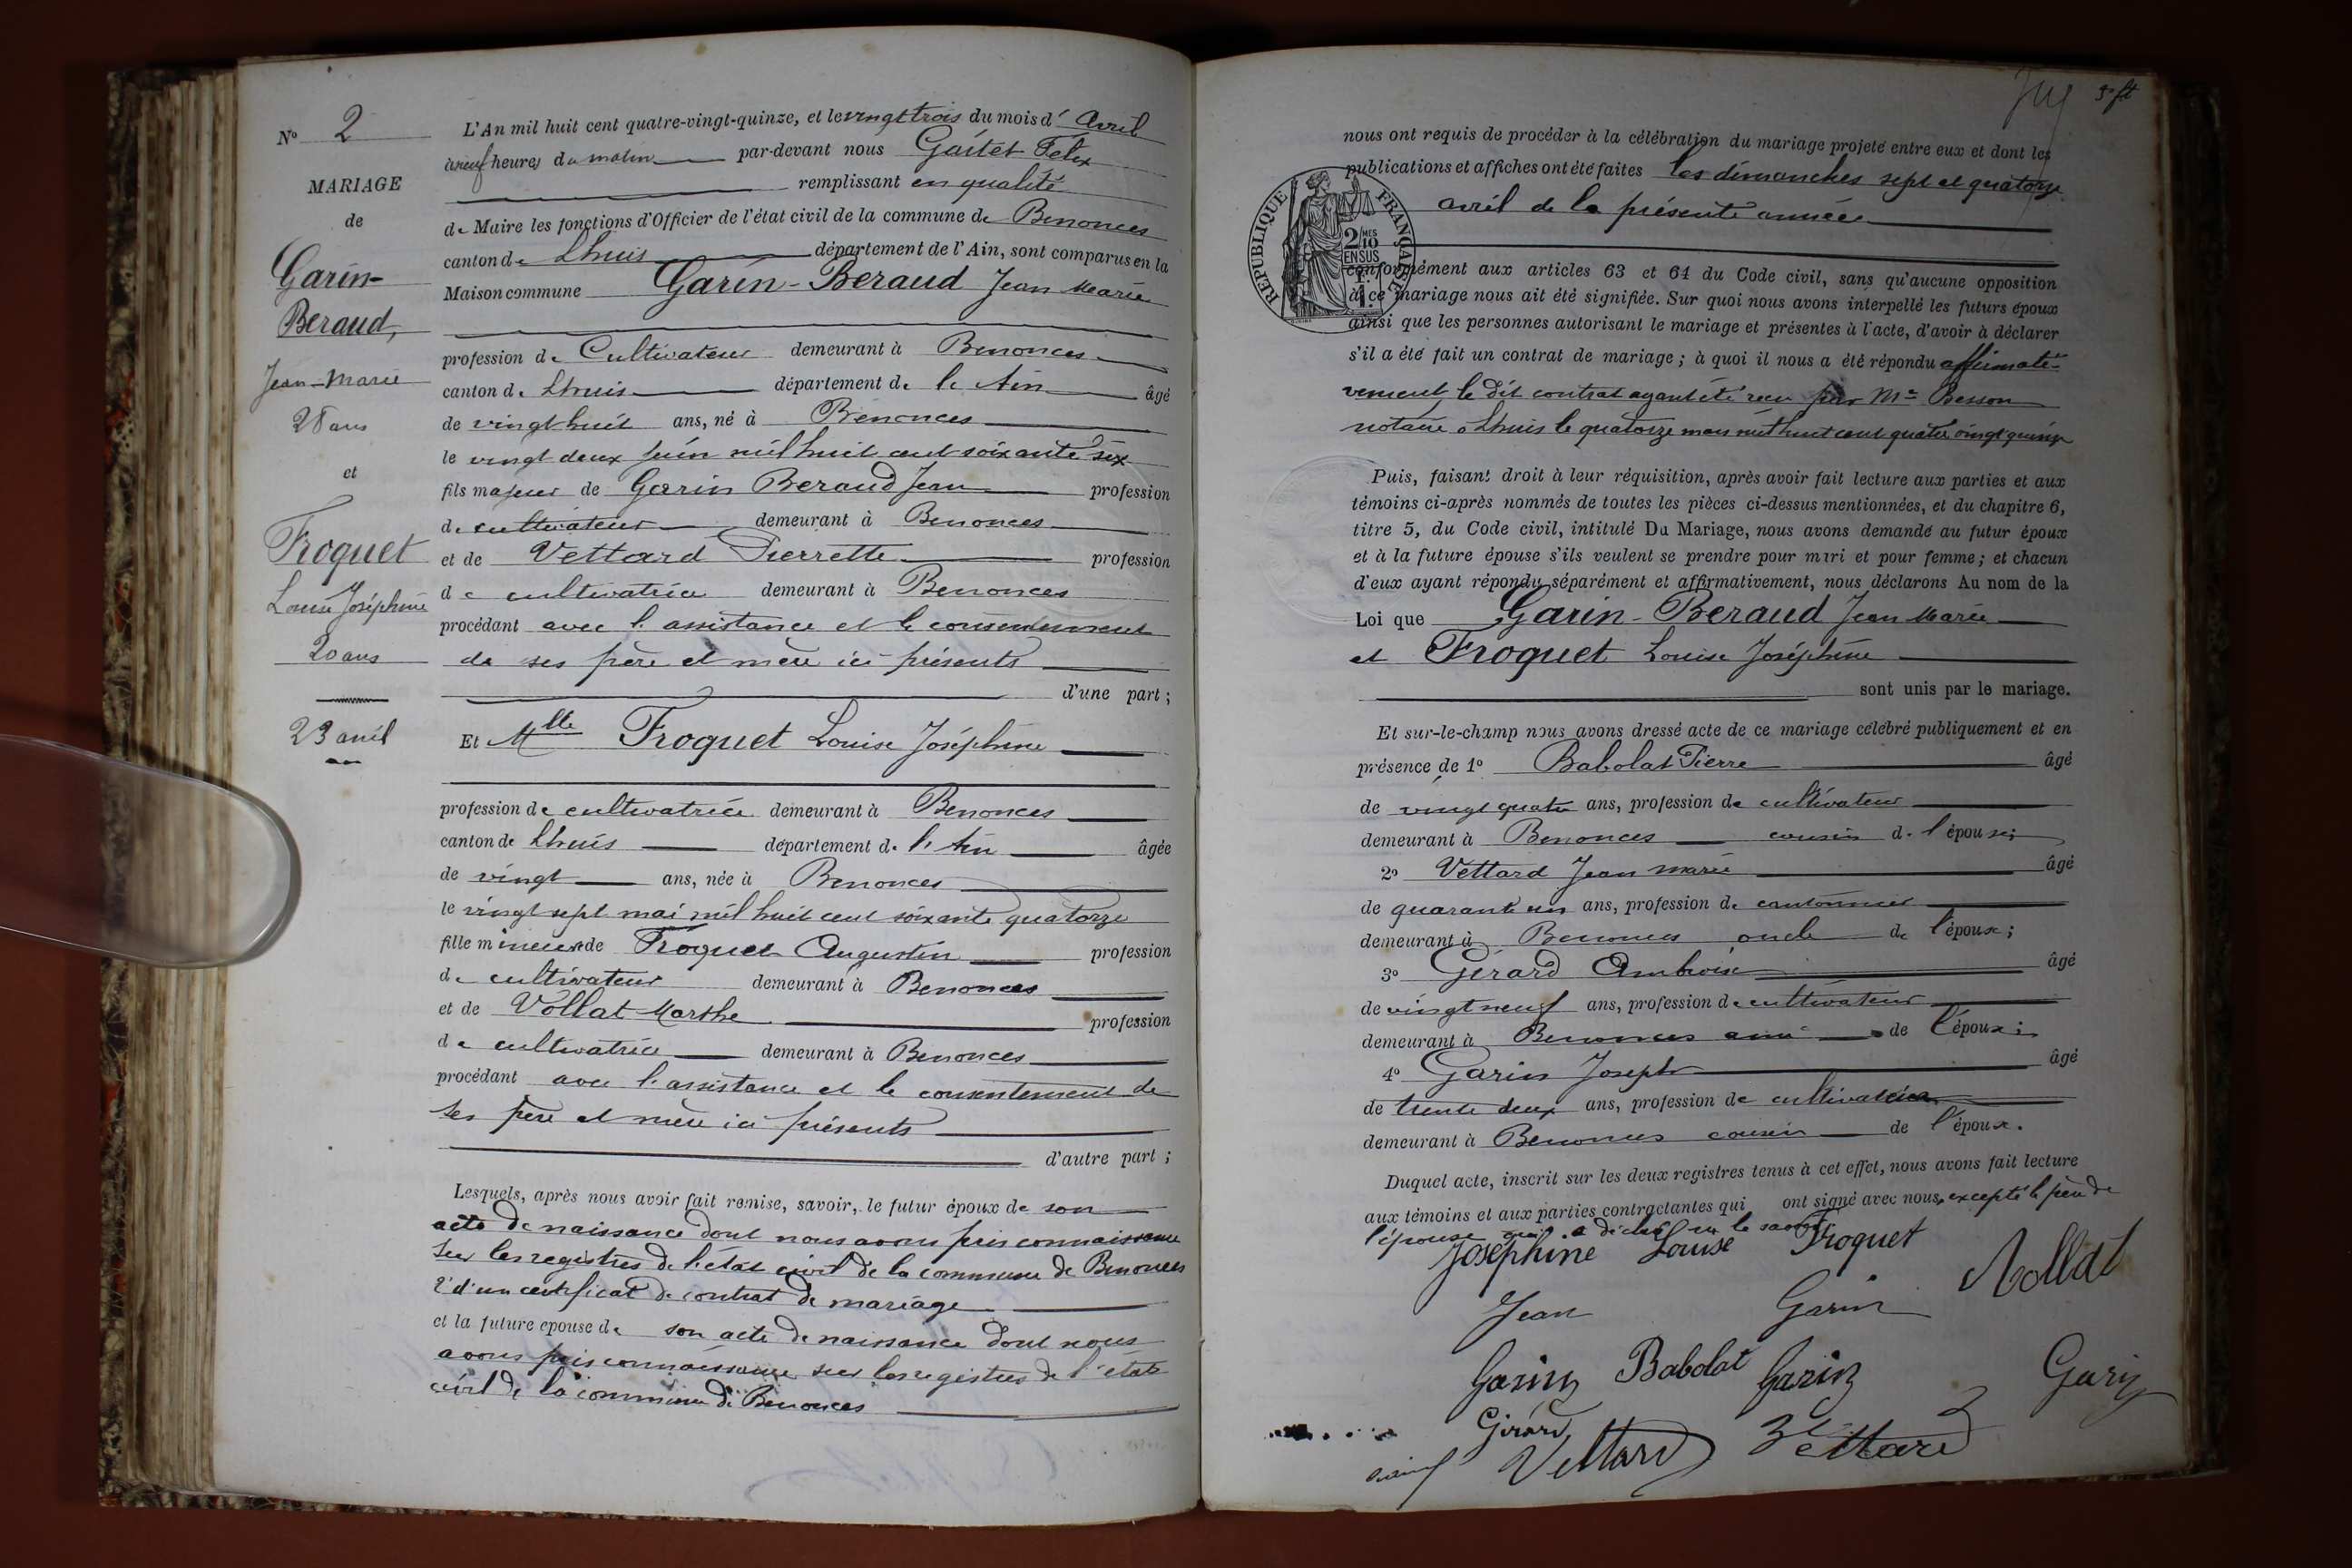 N° 2
MARIAGE
de
Garin-
Beraud,
Jean-Marie
28 ans
et
Froquet
Louise Joséphine
20 ans
23 avril
L'An mil huit cent quatre-vingt-quinze, et le vingt trois du mois d' avril
à neuf heures du matin par-devant nous Gaitet Félix
remplissant en qualité
de Maire les fonctions d'Officier de l'état civil de la commune de Benonces
canton de Lhuis département de l'Ain, sont comparus en la
Maison commune Garin-Beraud Jean Marie
profession de Cultivateur demeurant à Benonces
canton de Lhuis département de l'Ain âgé
de vingt huit ans, né à Benonces
le vingt deux juin mil huit cent soixante six
fils majeur de Garin Beraud Jean profession
de cultivateur demeurant à Benonces
et de Vettard Pierrette profession
de cultivatrice demeurant à Benonces
procédant avec l'assistance et le consentement
de ses père et mère ici présents
d'une part ;
Et Mlle Froquet Louise Joséphine
profession de cultivatrice demeurant à Benonces
canton de Lhuis département de l'Ain âgée
de vingt ans, née à Benonces
le vingt sept mai mil huit cent soixante quatorze
fille mineure de Froquet Augustin profession
de cultivateur demeurant à Benonces
et de Vollat Marthe profession
de cultivatrice demeurant à Benonces
procédant avec l'assistance et le consentement de
ses père et mère ici présents
d'autre part ;
Lesquels, après nous avoir fait remise, savoir, le futur époux de son
acte de naissance dont nous avons pris connaissance
sur les registres de l'état civil de la commune de Benonces
2° d'un certificat de contrat de mariage
et la future épouse de son acte de naissance dont nous
avons pris connaissance sur les registres de l'état
civil de la commune de Benonces
nous ont requis de procéder à la célébration du mariage projeté entre eux et dont les
publications et affiches ont été faites les dimanches sept et quatorze
avril de la présente année
RÉPUBLIQUE FRANÇAISE
2/10 MES
EN SUS
conformément aux articles 63 et 64 du Code civil, sans qu'aucune opposition
à ce mariage nous ait été signifiée. Sur quoi nous avons interpellé les futurs époux
ainsi que les personnes autorisant le mariage et présentes à l'acte, d'avoir à déclarer
s'il a été fait un contrat de mariage ; à quoi il nous a été répondu affirmati-
vement, le dit contrat ayant été reçu par Me Besson
notaire à Lhuis le quatorze mars mil huit cent quatre vingt quinze
Puis, faisant droit à leur réquisition, après avoir fait lecture aux parties et aux
témoins ci-après nommés de toutes les pièces ci-dessus mentionnées, et du chapitre 6,
titre 5, du Code civil, intitulé Du Mariage, nous avons demandé au futur époux
et à la future épouse s'ils veulent se prendre pour mari et pour femme ; et chacun
d'eux ayant répondu séparément et affirmativement, nous déclarons Au nom de la
Loi que Garin-Beraud Jean Marie
et Froquet Louise Joséphine
sont unis par le mariage.
Et sur-le-champ nous avons dressé acte de ce mariage célébré publiquement et en
présence de 1° Babolat Pierre âgé
de vingt quatre ans, profession de cultivateur
demeurant à Benonces cousin de l'épouse;
2° Vettard Jean marie âgé
de quarante un ans, profession de cantonnier
demeurant à Benonces oncle de l'époux;
3° Gérard Ambroise âgé
de vingt neuf ans, profession de cultivateur
demeurant à Benonces ami de l'époux;
4° Garin Joseph âgé
de trente deux ans, profession de cultivateur
demeurant à Benonces cousin de l'époux.
Duquel acte, inscrit sur les deux registres tenus à cet effet, nous avons fait lecture
aux témoins et aux parties contractantes qui ont signé avec nous, excepté le père de
l'épouse qui a déclaré ne le savoir
Joséphine Louise Froquet
Vollat
Jean Garin
Garin Babolat Garin Garin
Girard
Vettard Vettard